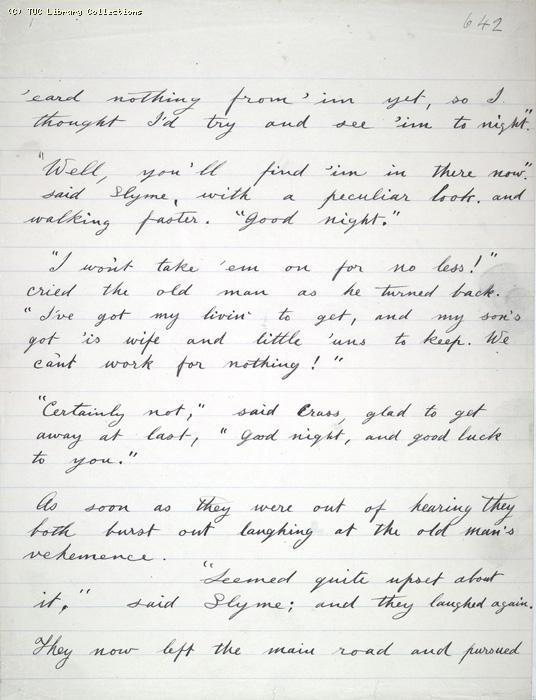 (C) TUC Library Collections
642
'eard nothing from 'im yet, so I
thought I'd try and see 'im to night".
"Well, you'll find 'im in there now".
said Slyme, with a peculiar look. and
walking faster. "Good night."
"I won't take 'em on for no less!"
cried the old man as he turned back.
"I've got my livin' to get, and my son's
got 'is wife and little 'uns to keep. We
can't work for nothing!"
"Certainly not," said Crass, glad to get
away at last, "Good night, and good luck
to you."
As soon as they were out of hearing they
both burst out laughing at the old man's
vehemence.
"Seemed quite upset about
it," said Slyme; and they laughed again.
They now left the main road and pursued